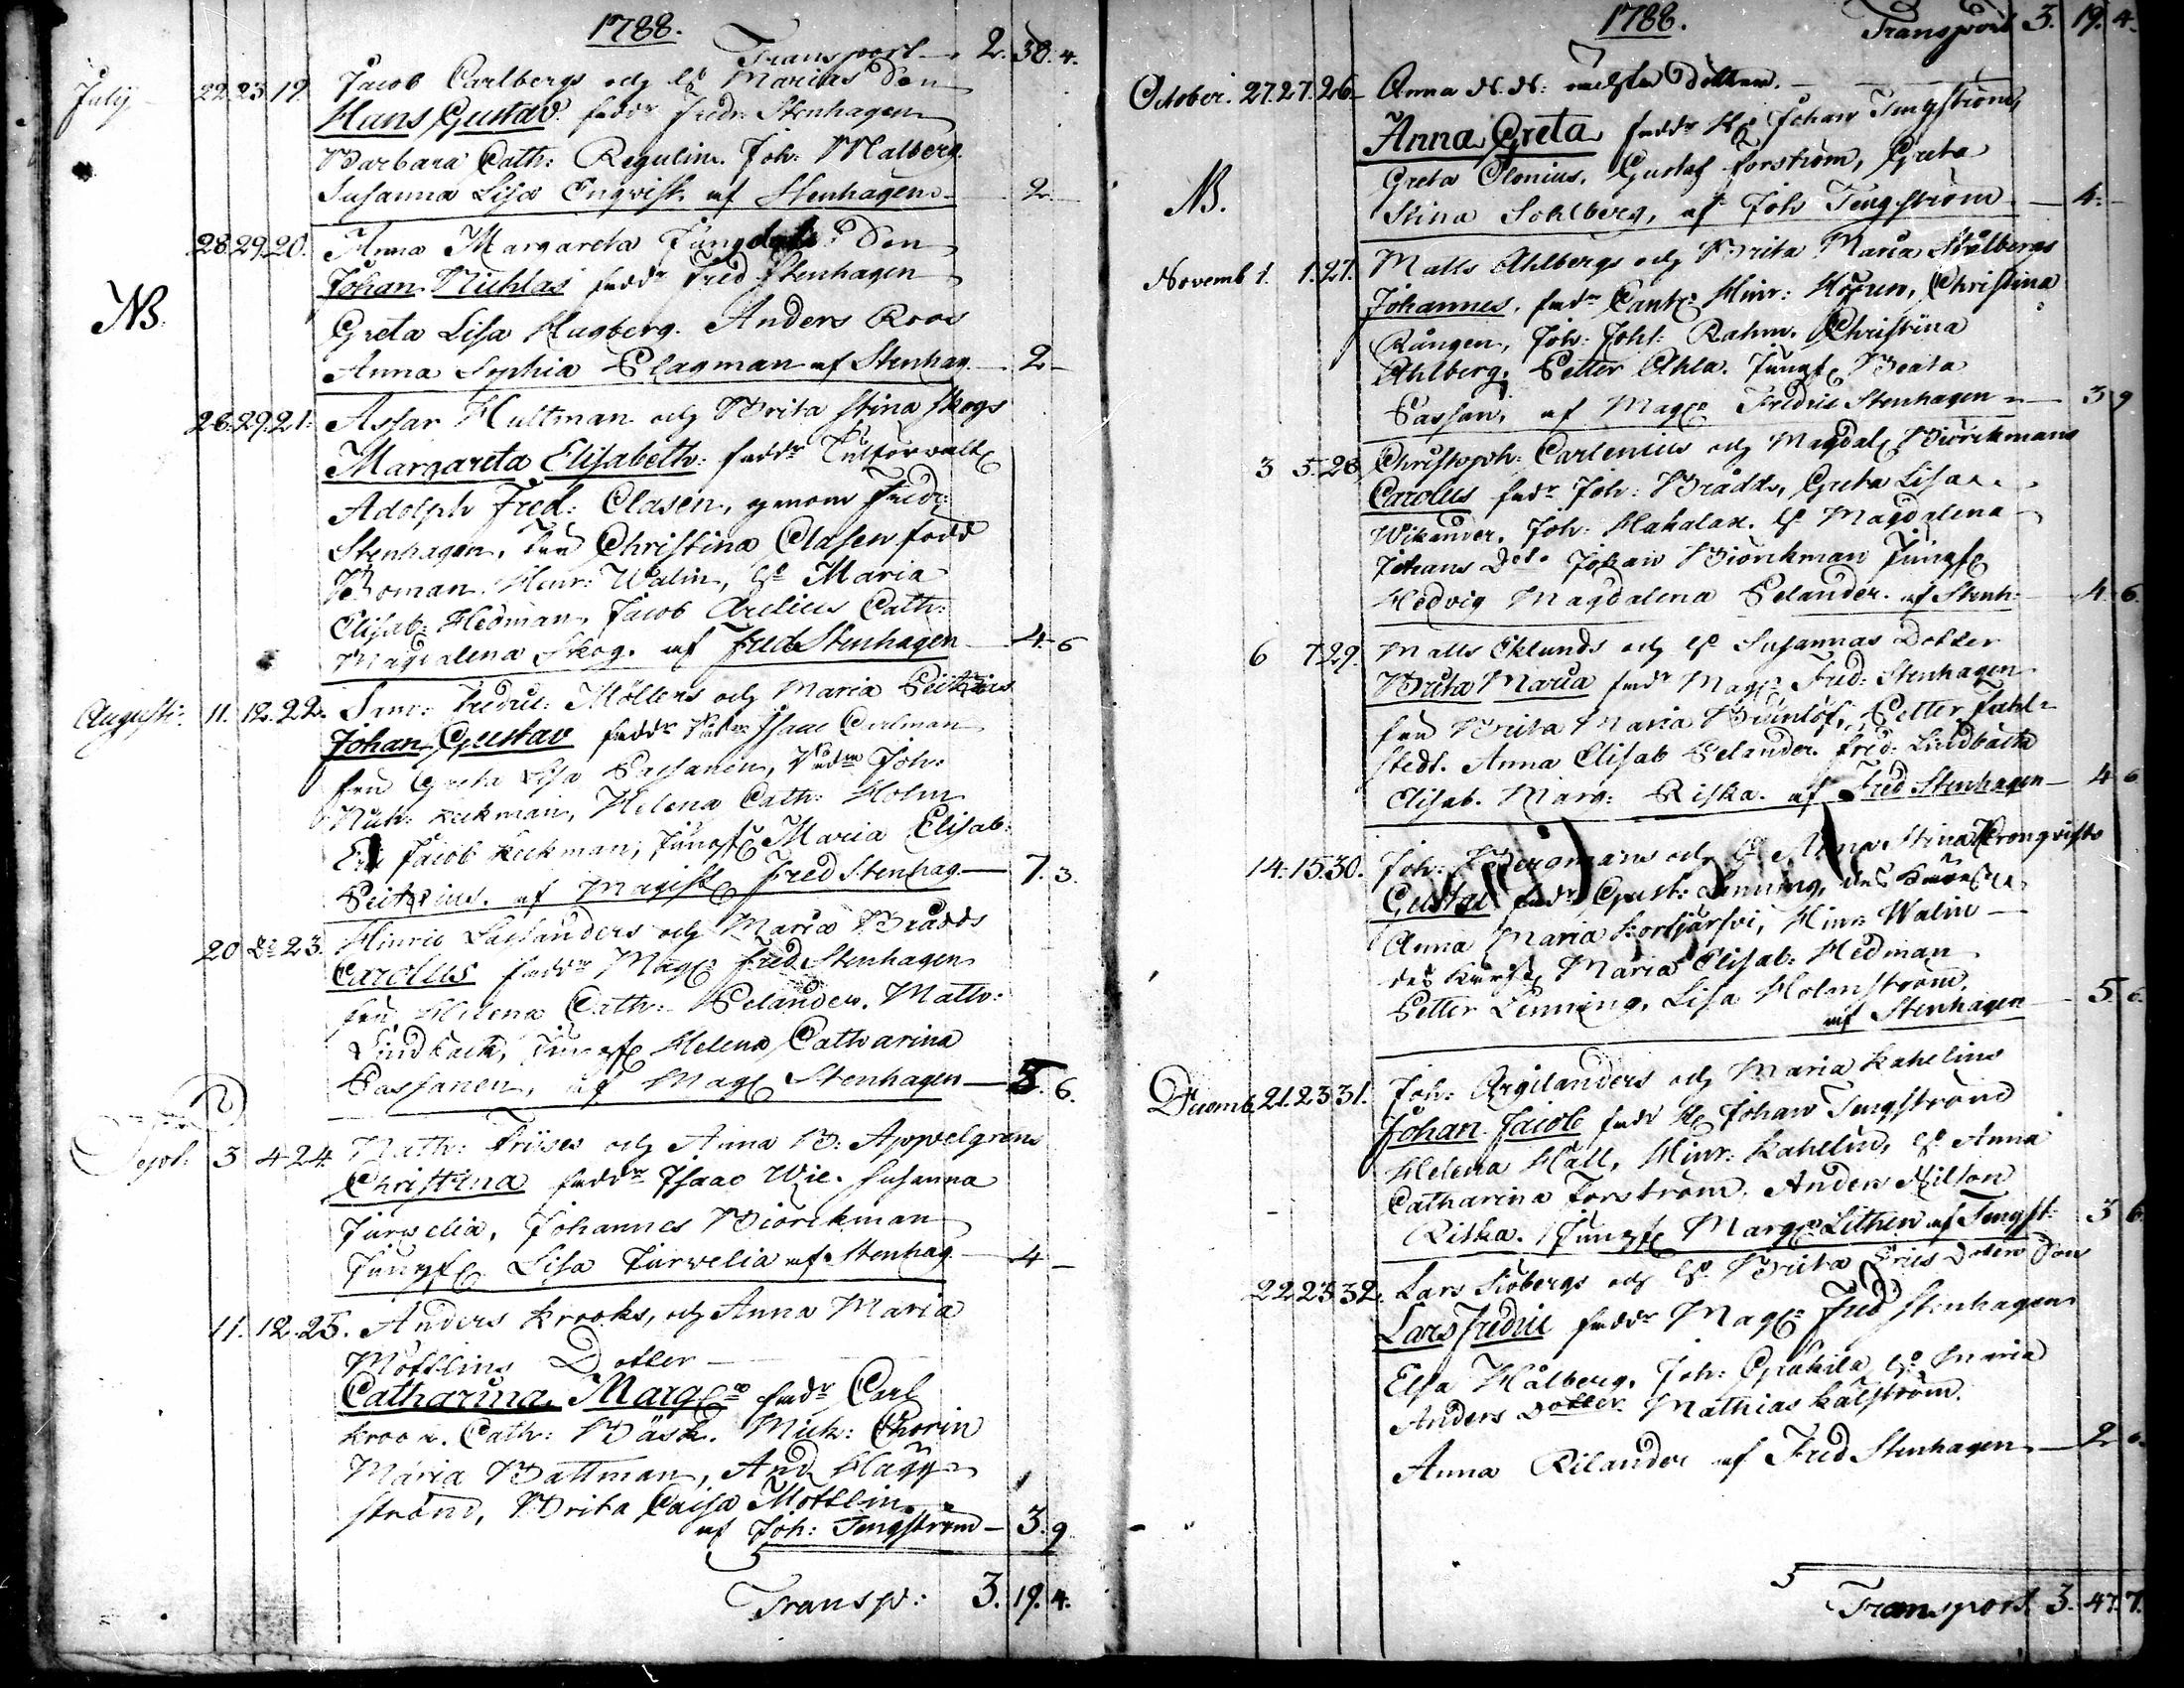 1788.
Transport — 2. 38. 4.
July 22. 23. 19. Jacob Carlbergs och H: Marias Son
Hans Gustav. fadd: Fredr: Stenhagen
Barbara Cath: Regulin. Joh: Malberg.
Susanna Lisa Enqvist. af Stenhagen — 2 —
28. 29. 20. Anna Margareta Ljungdahls Son
Johan Nichlas fadd: Fred Stenhagen
NB. Greta Lisa Hagberg. Anders Roos
Anna Sophia Plagman af Stenhag. — 2 —
26. 29. 21. Assar Hultman och Brita Stina Skogs
Margareta Elisabeth: fadd:
Adolph Fred: Clasen, genom Fredr:
Stenhagen, Fru Christina Clasen född
Boman. Henr: Walin, H: Maria
Elisab: Hedman, Jacob Arelius Cath:
Magdalena Skog. af Fred Stenhagen — 4. 6
Augusti. 11. 12. 22. Fredric: Möllers och Maria Peitzius
Johan Gustav fadd: Isaac Carlman
fru Greta Lisa Passanen, Joh:
Nich: Kekman, Helena Cath: Holm
Jacob Kekman, Jungf: Maria Elisab:
Peitzius. af Magist: Fred Stenhag — 7. 3.
20 D:o 23. Hinric Lassanders och Maria Brådds
Carolus fadd: Mag: Fred Stenhagen
fru Helena Cath: Pelander. Math:
Lindbäck, Jungf: Helena Catharina
Passanen, af Mag: Stenhagen — 5. 6.
Sept. 3 4 24. Math: Friises och Anna B: Appelgrens
Christina fadd: Isaac Wie. Susanna
Jurvelia, Johannes Biörckman
Jungf: Lisa Jurvelia af Stenhag — 4 —
11. 12. 25. Anders Krooks, och Anna Maria
Mottlins Dotter —
Catharina, Marg: fadd: Carl
Krook. Cath: Bäsk. Mich: Chorin
Maria Battman, And Hägg-
ström, Brita Caisa Mottlin
af Joh: Tengström — 3. 9
Transp: 3. 19. 4.
1788.
Transport 3. 19. 4.
October. 27. 27. 26. Anna N. N: oächta Dotter. —
Anna Greta fadd: H: Johan Tengström,
Greta Clonius, Gustaf Forström, Greta
NB. Stina Sohlberg, af Joh Tengström — 4. —
Novemb 1. 1. 27. Matts Ahlbergs och Brita Maria Stålbergs
Johannes. fadd: Cant: Hinr: Christina
Rången, Joh: Joh: Rahm. Christina
Ahlberg, Petter Ahla. Jungf: Beata
Passan, af Mag: Fredric Stenhagen — 3 9
3 5. 28 Christoph: Carlenius och Magdal: Biörckmans
Carolus fadd: Joh: Brådds, Greta Lisa
Wikander, Joh: Mahalax. H: Magdalena
Johans Dot. Johan Biörckman Jungf:
Hedvig Magdalena Pelander. af Stenh: — 4. 6.
6 7 29. Matts Eklunds och H: Susannas Dotter
Brita Maria fadd: Mag: Fred: Stenhagen
fru Brita Maria Petter Fahl-
stedt. Anna Elisab Pelander. Fred: Lindbäck
Elisab. Marg: Riska. af Fred Stenhagen — 4 6
14. 15 30. Joh: Bergmans och H: Anna Stina Kronqvists
Gustaf fadd: Gust: Lenning, des
Anna Maria Kortjärfvi, Hinr: Walin —
des Maria Elisab: Hedman
Petter Lenning, Lisa Holmström.
af Stenhagen — 5. 6.
Decemb. 21. 23 31. Joh: Argilanders och Maria Kahelins
Johan Jacob fadd: H: Johan Tengström
Helena Häll, Hinr: Kahelin, H: Anna
Catharina Forström. Anders Nilson
Riska. Jungf: Marg: Lithen af Tengst: 3 6
22 23 32. Lars Siöbergs och H: Brita Eriks Doters Son
Lars Fredric fadd: Mag: Fred Stenhagen
Elsa Hålberg. Joh: H: Maria
Anders Dotter Mathias Kalström.
Anna Rilander af Fred Stenhagen — 2 6
Transport. 3. 47. 7.